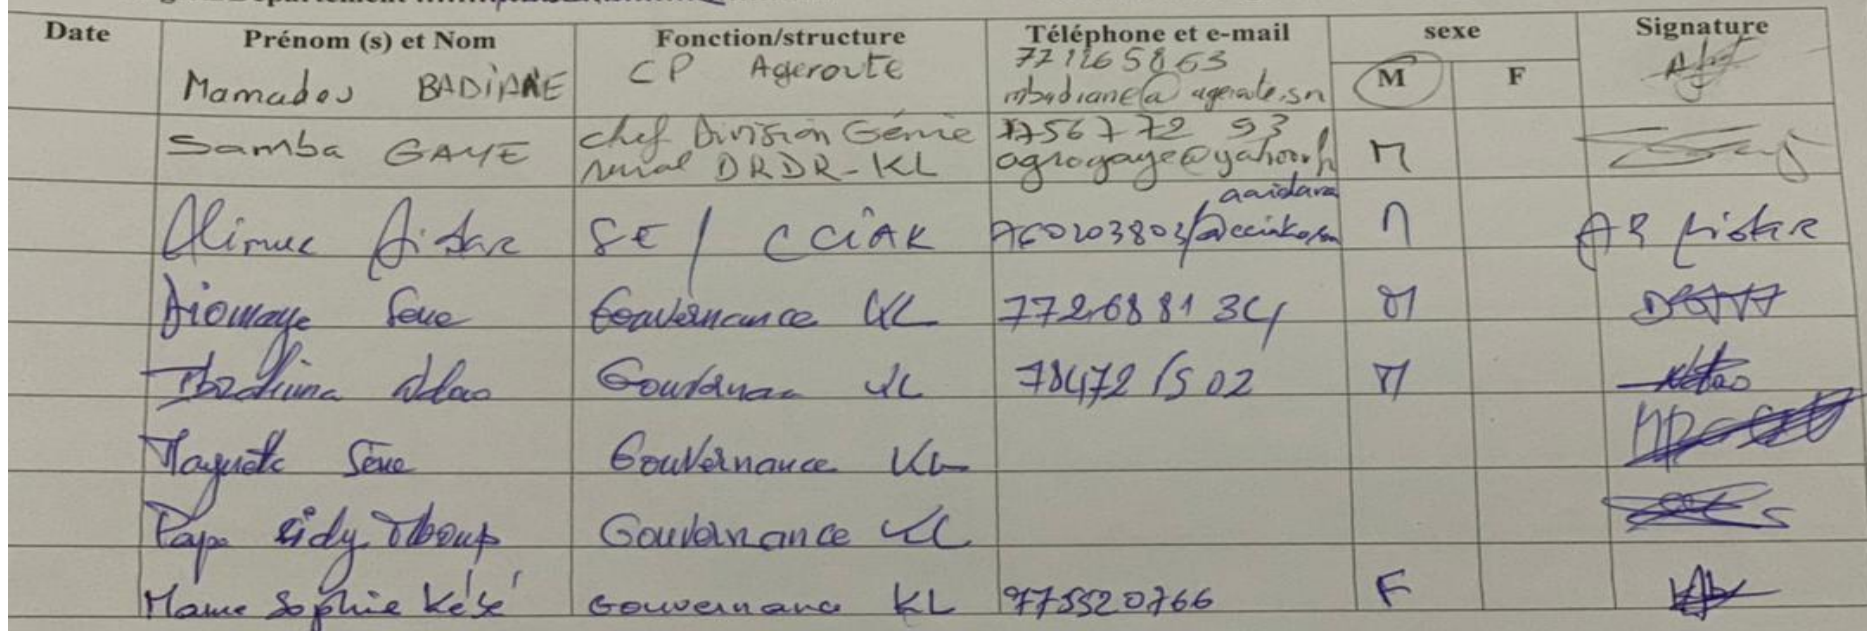 Date Prénom (s) et Nom Fonction/structure Téléphone et e-mail sexe Signature
M F
Mamadou BADIANE CP Ageroute 772265863
mbadiane@ageroute.sn
Samba GAYE Chef Division Génie rural DRDR-KL 775677293
agrogaye@yahoo.fr M
Alioune Aidara SE / CCIAK 760203803/ aaidara@cciak.sn M
Diomaye Sene Gouvernance KL 772688134 M
Ibrahima Ndao Gouvernance KL 784721502 M
Sene Gouvernance KL
Pape Sidy Mboup Gouvernance KL
Mame Sophie Késé Gouvernance KL 775520766 F